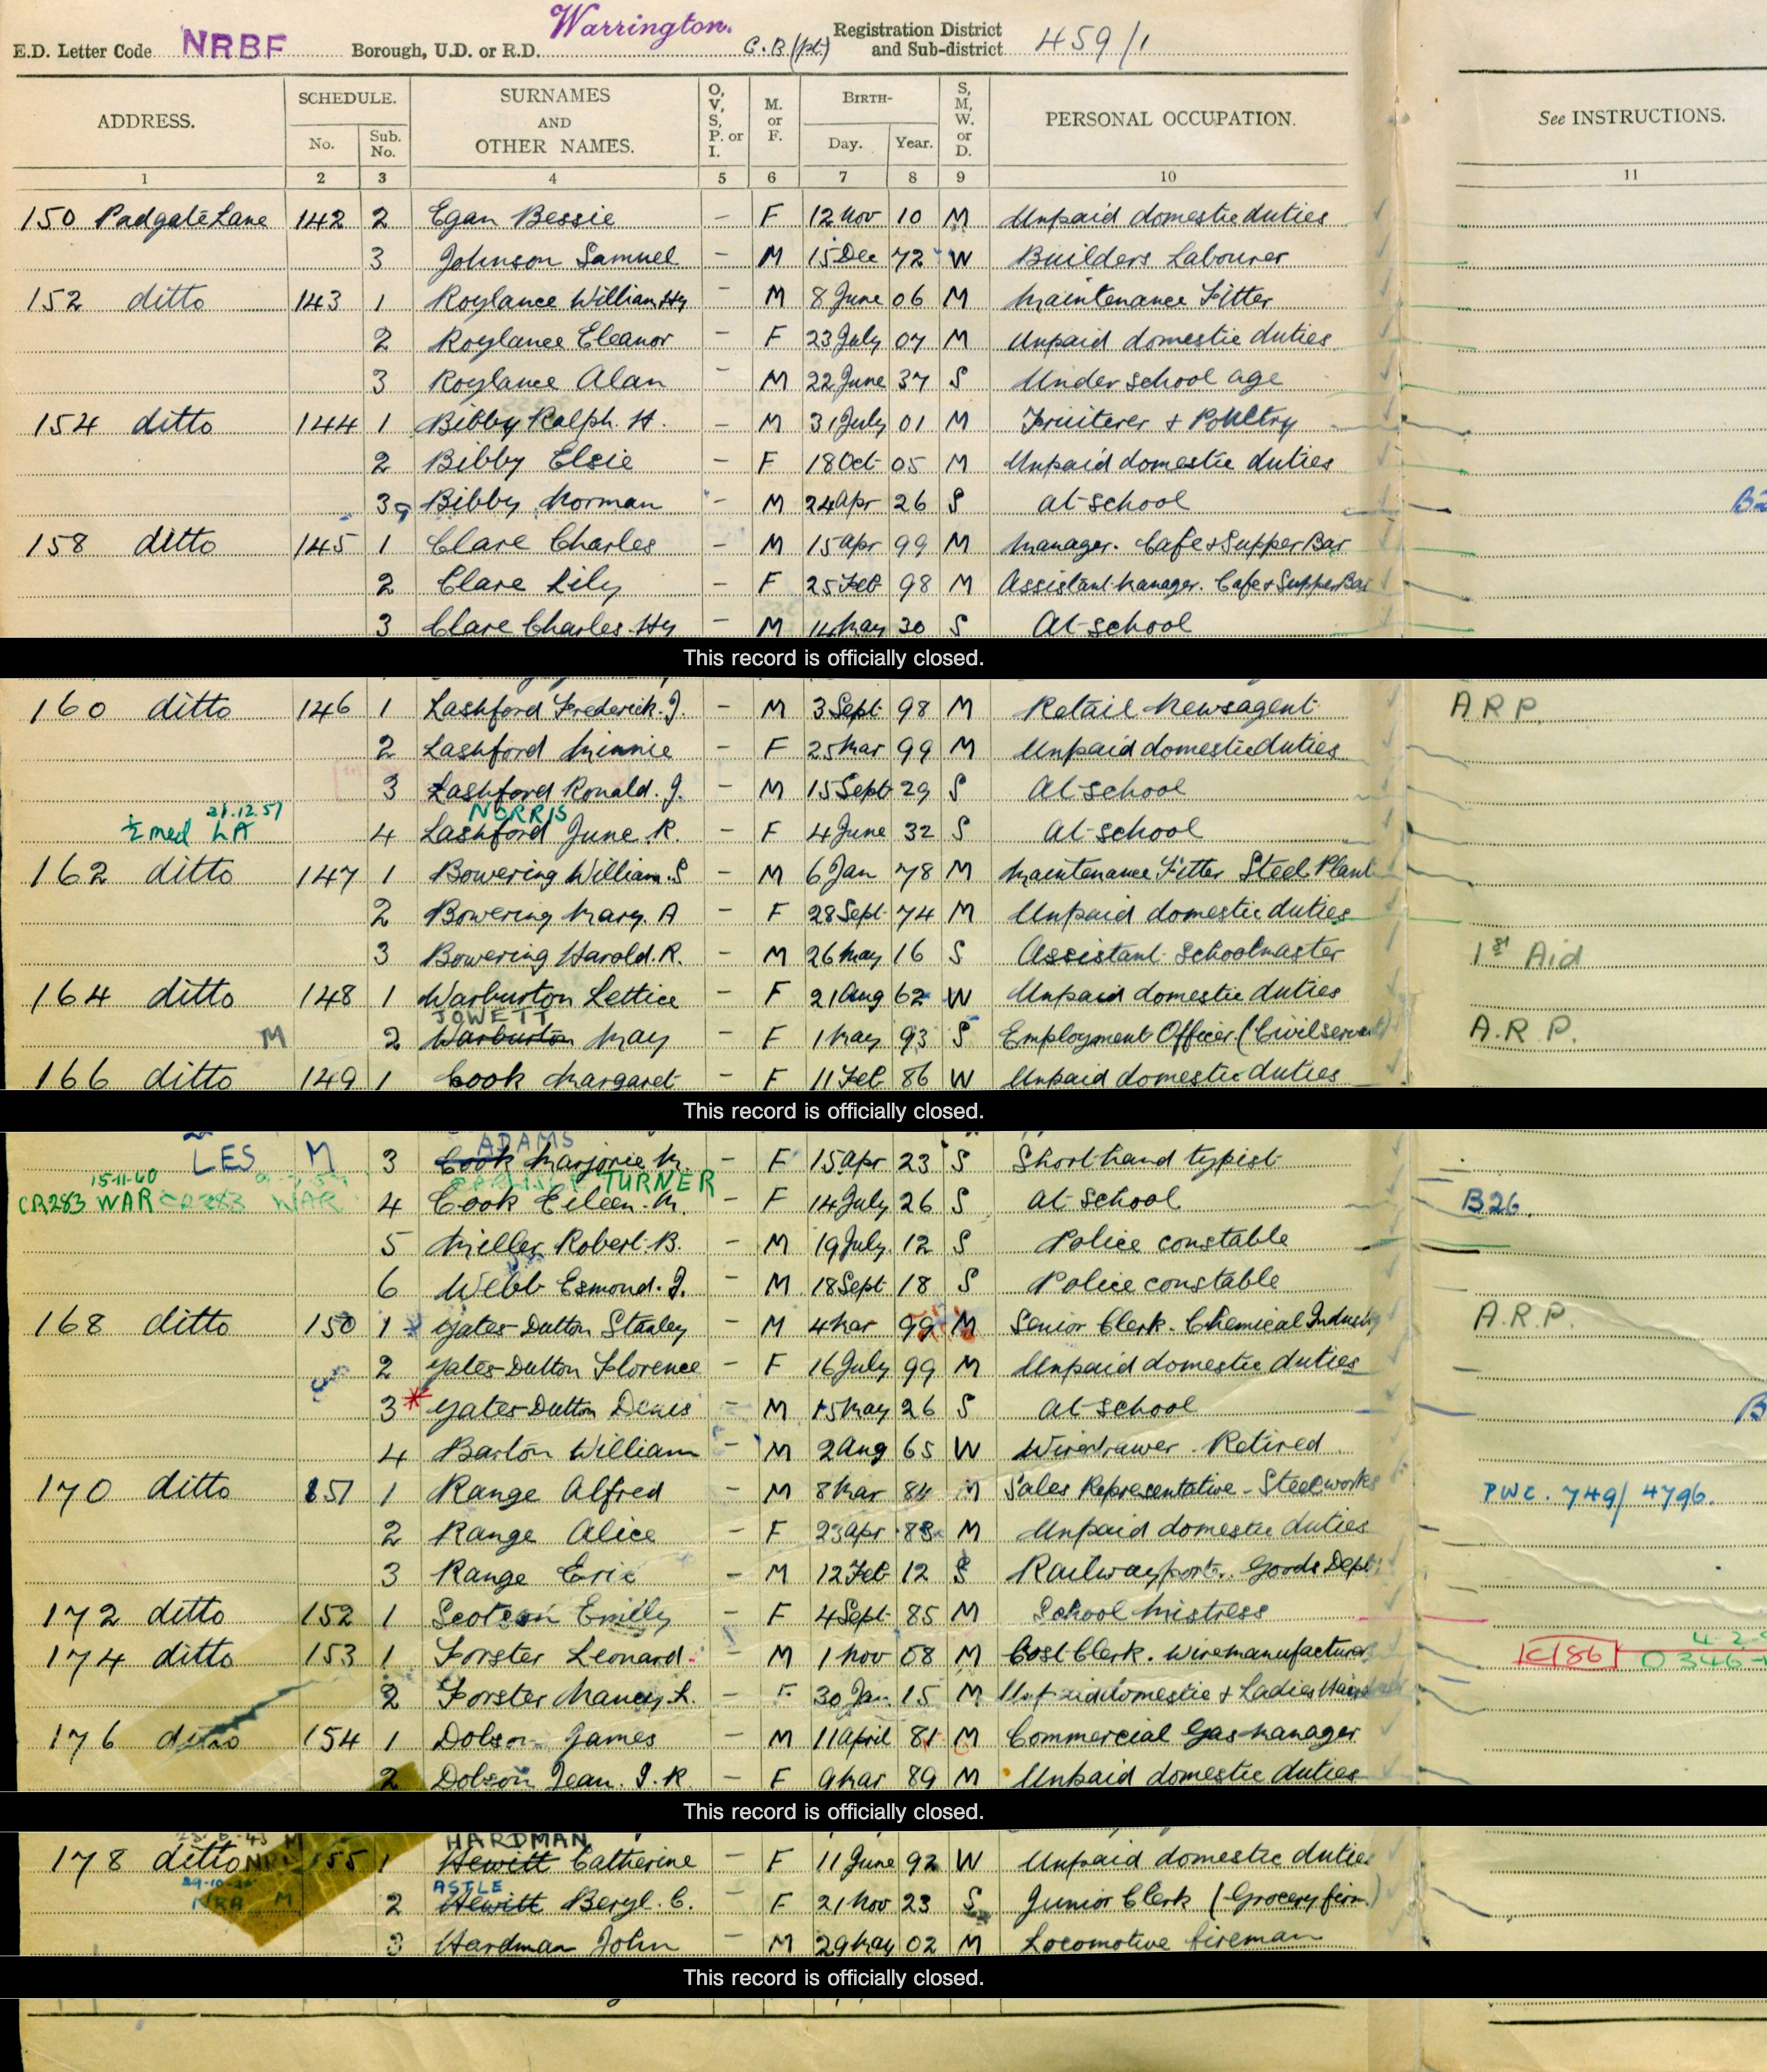 Warrington.
E.D. Letter Code NRBF Borough, U.D. or R.D. C.B.(pt.) Registration District and Sub-district 459/1
ADDRESS. SCHEDULE. No. Sub. No. SURNAMES AND OTHER NAMES. O, V, S, P. or I. M. or F. BIRTH- Day. Year. S, M, W. or D. PERSONAL OCCUPATION. See INSTRUCTIONS.
1 2 3 4 5 6 7 8 9 10 11
150 Padgate Lane 142 2 Egan Bessie – F 12 Nov 10 M Unpaid domestic duties
3 Johnson Samuel – M 15 Dec 72 W Builders Labourer
152 ditto 143 1 Roylance William Hy – M 8 June 06 M Maintenance Fitter
2 Roylance Eleanor – F 23 July 07 M Unpaid domestic duties
3 Roylance Alan – M 22 June 37 S Under school age
154 ditto 144 1 Bibby Ralph. H. – M 31 July 01 M Fruiterer + Poultry
2 Bibby Elsie – F 18 Oct 05 M Unpaid domestic duties
3 Bibby Norman – M 24 Apr 26 S At school
158 ditto 145 1 Clare Charles – M 15 Apr 99 M Manager. Cafe + Supper Bar
2 Clare Lily – F 25 Feb 98 M Assistant Manager. Cafe + Supper Bar
3 Clare Charles. Hy M 14 May 30 S At school
This record is officially closed.
160 ditto 146 1 Lashford Frederick. J. – M 3 Sept 98 M Retail Newsagent A R P.
2 Lashford Minnie – F 25 Mar 99 M Unpaid domestic duties
3 Lashford Ronald. J. – M 15 Sept 29 S At school
21.12.51 NORRIS
½ med LA 4 Lashford June. R. – F 4 June 32 S At school
162 ditto 147 1 Bowering William. S – M 6 Jan 78 M Maintenance Fitter Steel Plant
2 Bowering Mary. A – F 28 Sept 74 M Unpaid domestic duties
3 Bowering Harold. R. – M 26 May 16 S Assistant Schoolmaster 1st Aid
164 ditto 148 1 Warburton Lettice – F 21 Aug 62 W Unpaid domestic duties
JOWETT
M 2 Warburton May – F 1 May 93 S Employment Officer. (Civil servant) A.R.P.
166 ditto 149 1 Cook Margaret – F 11 Feb 86 W Unpaid domestic duties
This record is officially closed.
ADAMS
LES M 3 Cook Marjorie M. – F 15 Apr 23 S Shorthand typist
15-11-60 TURNER
CR283 WAR CR283 WAR 4 Cook Eileen. M. – F 14 July 26 S At school B26.
5 Miller Robert. B. – M 19 July 12 S Police constable
6 Webb Esmond. J. – M 18 Sept 18 S Police constable
168 ditto 150 1 Yates-Dutton Stanley – M 4 Mar 99 M Senior Clerk. Chemical Industry A.R.P.
2 Yates-Dutton Florence – F 16 July 99 M Unpaid domestic duties
3 * Yates-Dutton Denis – M 15 May 26 S At school B
4 Barton William – M 2 Aug 65 W Wiredrawer. Retired.
170 ditto 151 1 Range Alfred – M 8 Mar 84 M Sales Representative – Steelworks PWC. 749/4796.
2 Range Alice – F 23 Apr 83 M Unpaid domestic duties
3 Range Eric – M 12 Feb 12 S Railway Goods Dept.
172 ditto 152 1 Emily – F 4 Sept 85 M School Mistress
174 ditto 153 1 Forster Leonard. – M 1 Nov 08 M Cost Clerk. Wire manufacturer C186 O 346
2 Forster L. – F 30 Jan 15 M Unpaid domestic + Ladies
176 ditto 154 1 Dobson James – M 11 April 81 M Commercial Gas Manager
2 Dobson Jean. J. R – F 9 Mar 89 M Unpaid domestic duties
This record is officially closed.
HARDMAN
178 ditto 155 1 Hewitt Catherine – F 11 June 92 W Unpaid domestic duties
ASTLE
NRA M 2 Hewitt Beryl. C. – F 21 Nov 23 S Junior Clerk (Grocery firm)
3 Hardman John – M 29 May 02 M Locomotive fireman
This record is officially closed.